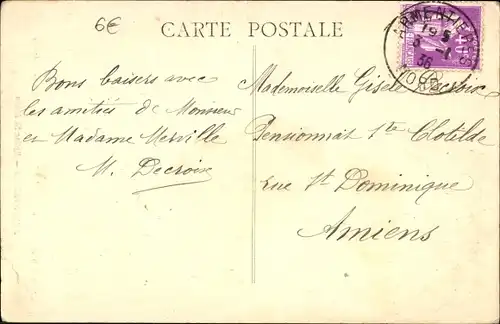 6€
CARTE POSTALE
ARMENTIÈRES
19 5
5 - 1
36
NORD
40c
Bons baisers avec
les amitiés de Monsieur
et Madame Merville
M. Decroix
Mademoiselle Gisèle
Pensionnat Ste Clotilde
rue St Dominique
Amiens